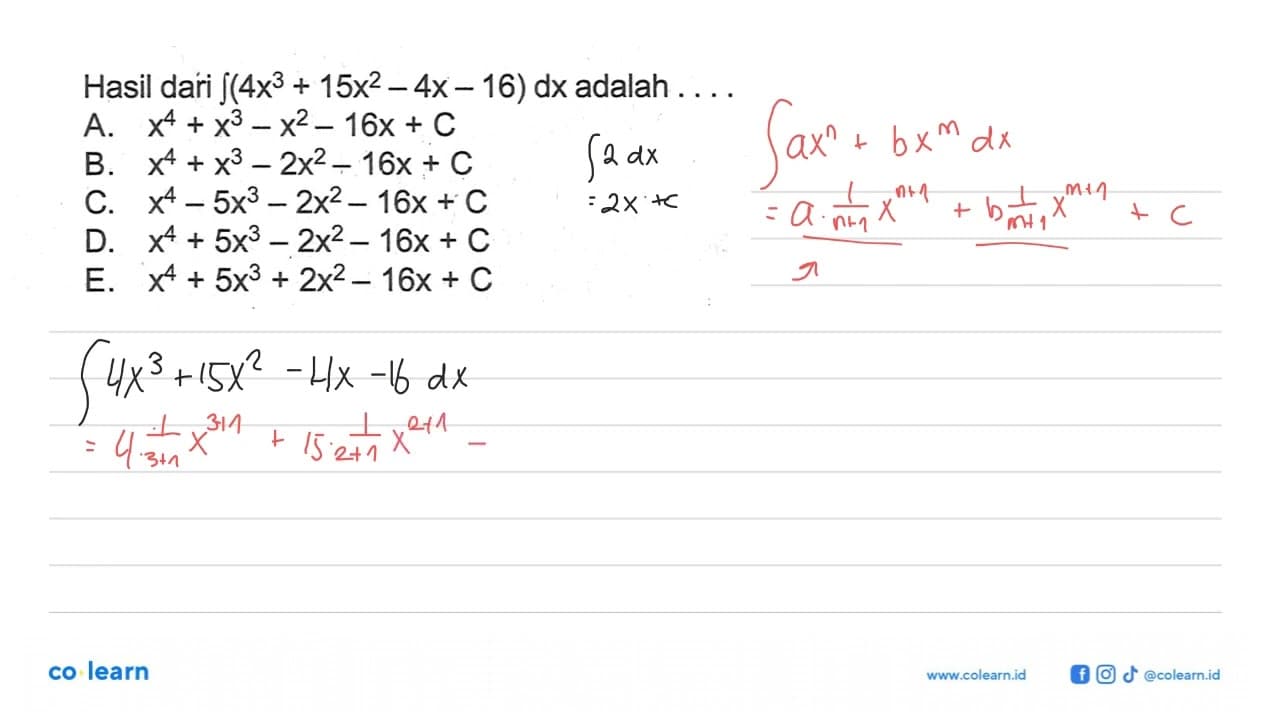 Hasil dari ∫(4x³ + 15x² – 4x – 16) dx adalah . . . .
A. x⁴ + x³ – x² – 16x + C
B. x⁴ + x³ – 2x² – 16x + C
C. x⁴ – 5x³ – 2x² – 16x + C
D. x⁴ + 5x³ – 2x² – 16x + C
E. x⁴ + 5x³ + 2x² – 16x + C
∫2 dx
= 2x + c
∫axⁿ + bxᵐ dx
= a · 1/(n+1) xⁿ⁺¹ + b 1/(m+1) xᵐ⁺¹ + C
∫4x³ + 15x² - 4x - 16 dx
= 4 · 1/(3+1) x³⁺¹ + 15 · 1/(2+1) x²⁺¹ -
co learn
www.colearn.id
@colearn.id